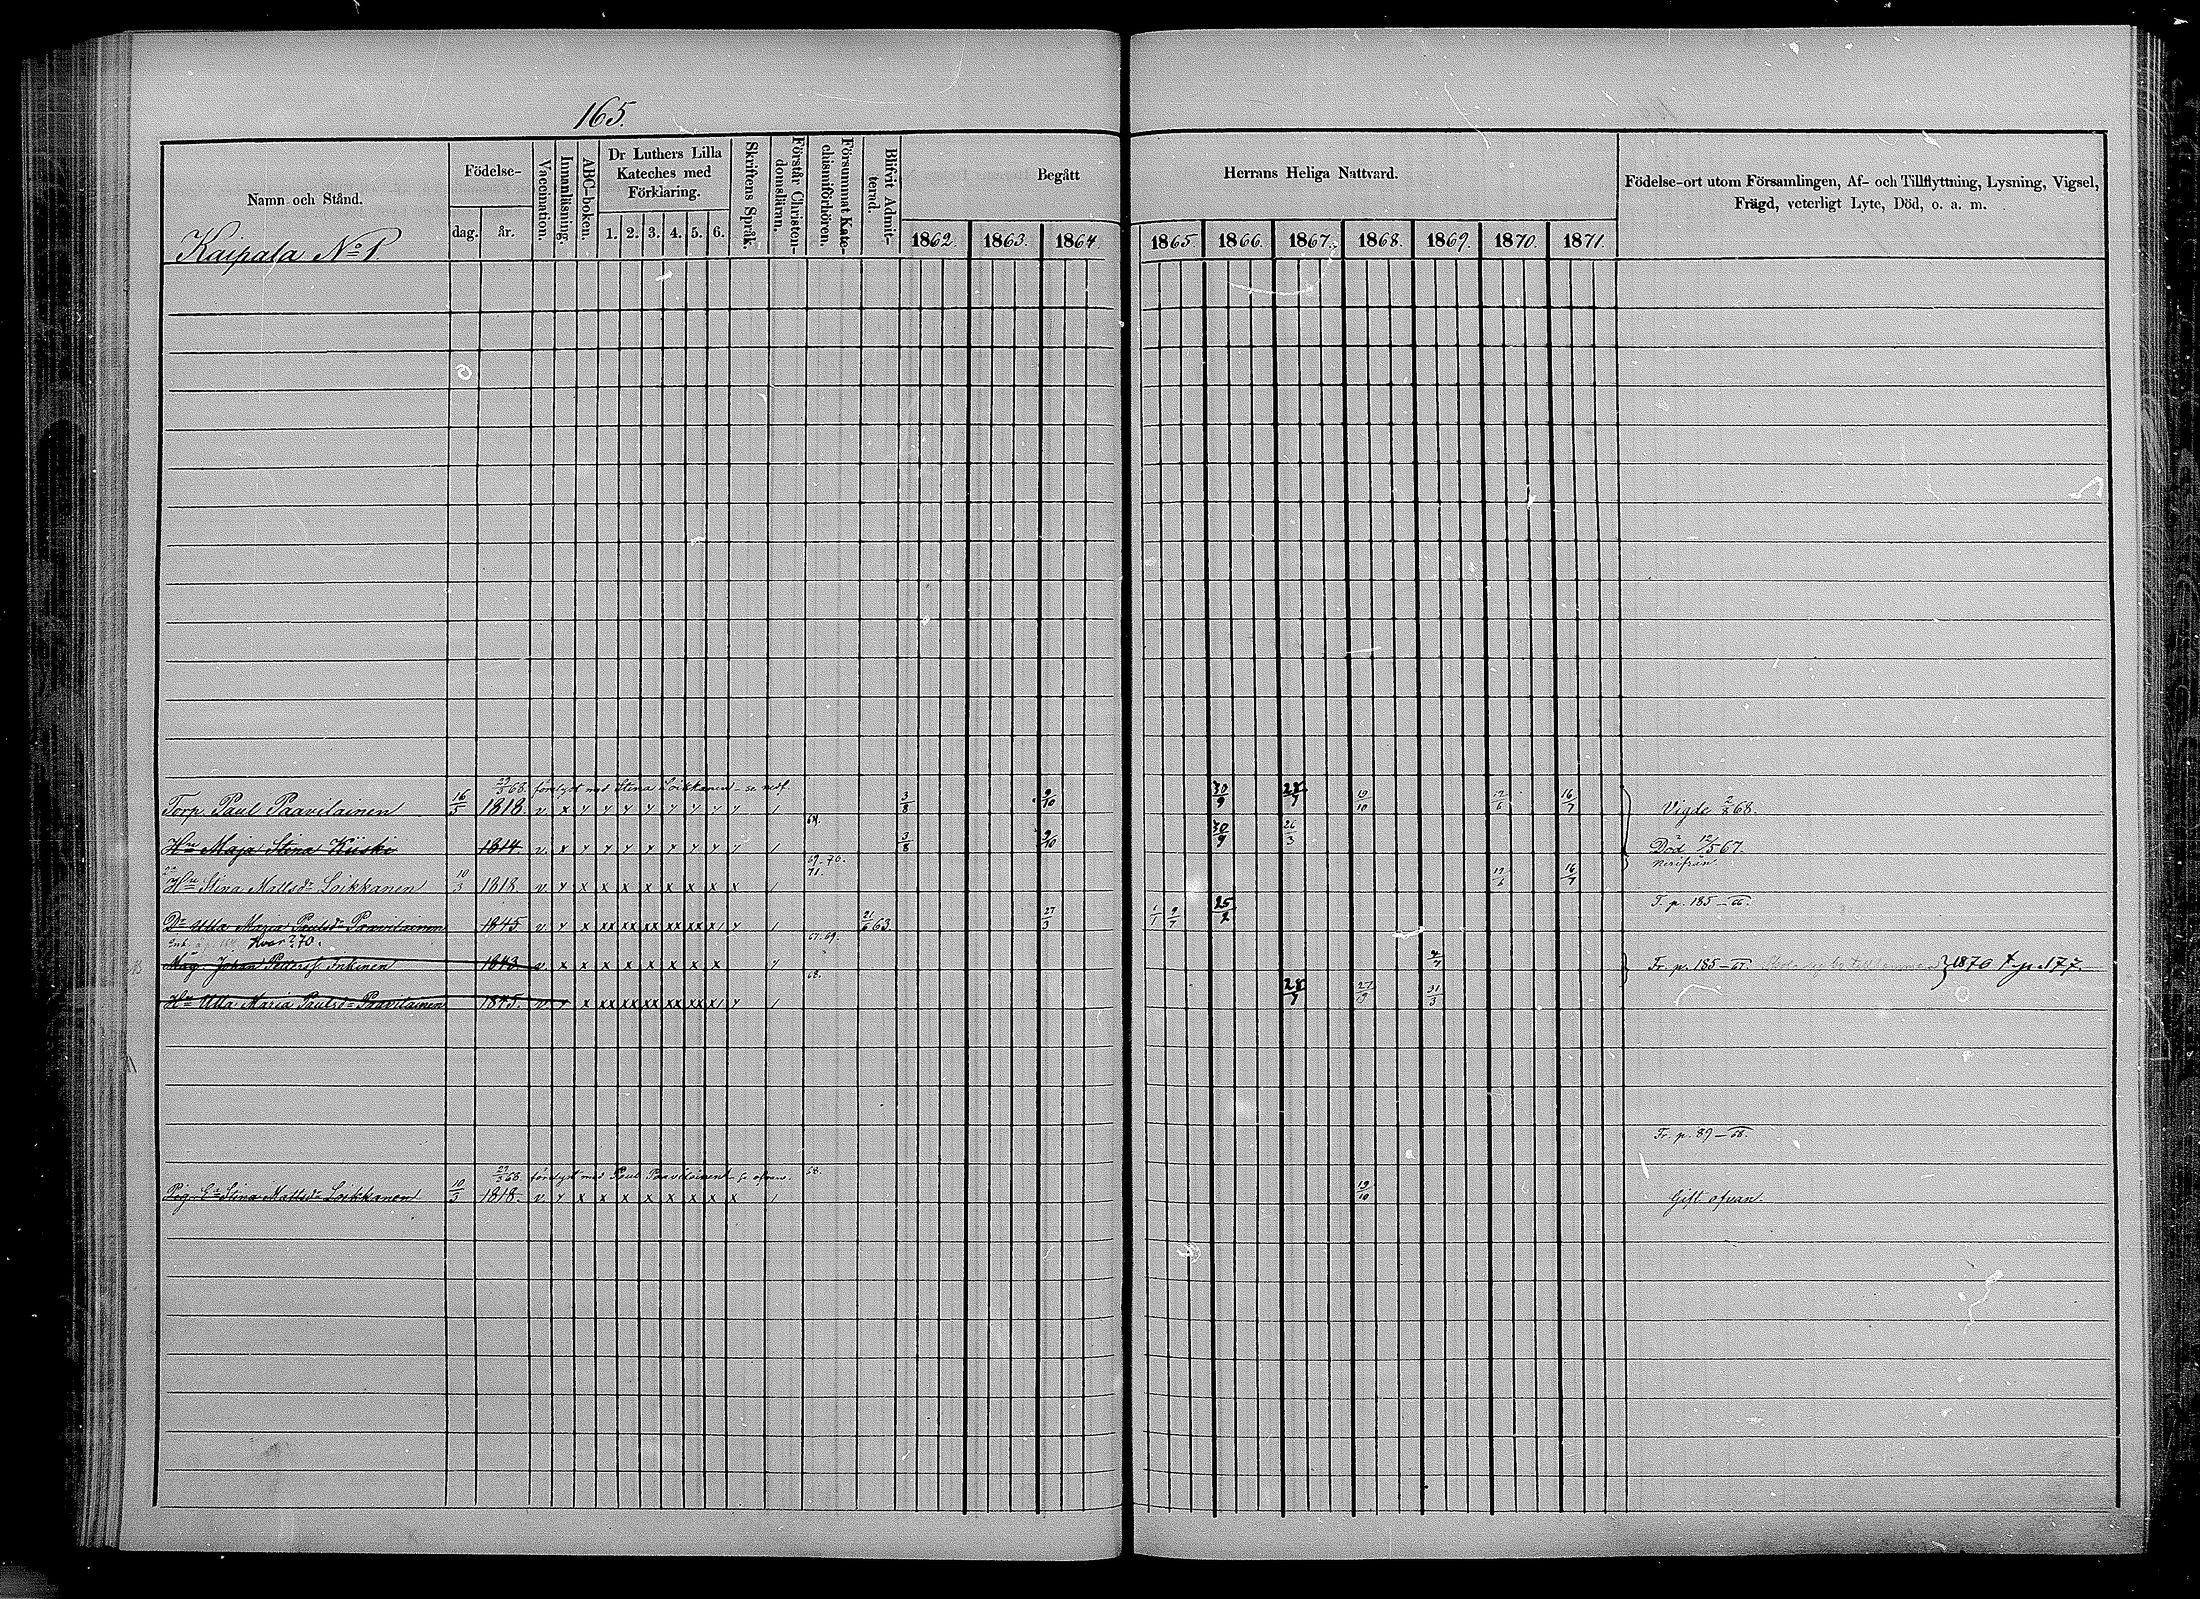 165.
Namn och Stånd.
Födelse-
dag. år.
Vaccination.
Innanläsning.
ABC-boken.
Dr Luthers Lilla
Kateches med
Förklaring.
1. 2. 3. 4. 5. 6.
Skriftens Språk.
Förstår Christen-
domsläran.
Försummat Kate-
chismiförhören.
Blifvit Admit-
terad.
Begått Herrans Heliga Nattvard.
1862. 1863. 1864. 1865. 1866. 1867. 1868. 1869. 1870. 1871.
Födelse-ort utom Församlingen, Af- och Tillflyttning, Lysning, Vigsel,
Frägd, veterligt Lyte, Död, o. a. m.
Kaipala No 1.
29/3 68. förelyst med Stina Loikkanen - se nedf.
Torp. Paul Paavilainen 16/5 1818. v x y y y y y y y y 1 3/8 9/10 30/9 28/7 19/10 12/6 16/7 Vigde 2/8 68.
64.
Hu Maja Stina Kiiski 1814. v. x y y y y x y y y 1 3/8 9/10 30/9 26/3 Död 12/5 67.
69-70.
71.
2a Hu Stina Mattsdr Loikkanen 10/3 1818. v. y x x x x x x x x 1 12/6 16/7 nerifrån
Dr Ulla Maria Paulsdr Paavilainen 1845 v. y x xx xx xx xx xx x/ y 1 21/6 63. 27/3 1/1 9/7 25/2 T. p. 185-66.
67. 69.
Måg. Johan Petterss. Inkinen 1843. v. x x x x x x x x y 4/7 Fr. p. 185-67. 1870 t. p. 177.
68.
Hu Ulla Maria Paulsdr Paavilainen 1845. v y x xx xx xx xx xx x/ y 1 28/7 27/9 21/3
Fr. p. 89-68.
29/3 68. förelyst med Paul Paavilainen - se ofvan. 68.
Pig. Ea Stina Mattsdr Loikkanen 10/3 1818. v. y x x x x x x x x 1 19/10 Gift ofvan.